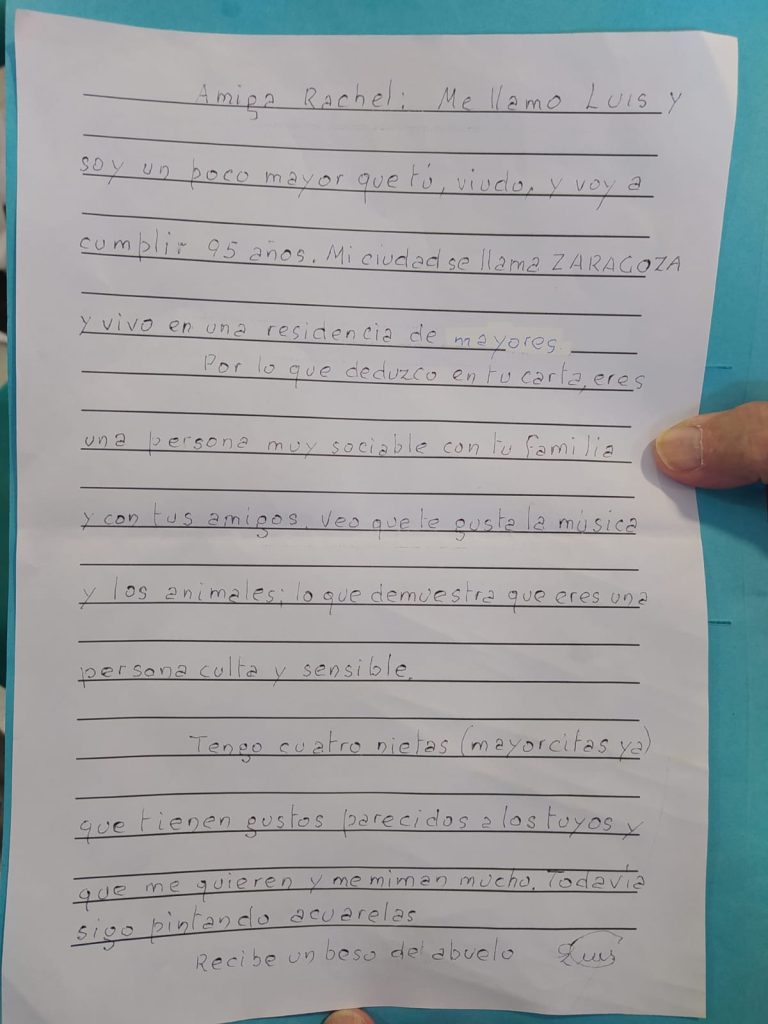 Amiga Rachel: Me llamo LUIS y
soy un poco mayor que tú, viudo, y voy a
cumplir 95 años. Mi ciudad se llama ZARAGOZA
y vivo en una residencia de mayores.
Por lo que deduzco en tu carta, eres
una persona muy sociable con tu familia
y con tus amigos. Veo que te gusta la música
y los animales; lo que demuestra que eres una
persona culta y sensible.
Tengo cuatro nietas (mayorcitas ya)
que tienen gustos parecidos a los tuyos y
que me quieren y me miman mucho. Todavía
sigo pintando acuarelas
Recibe un beso del abuelo Luis